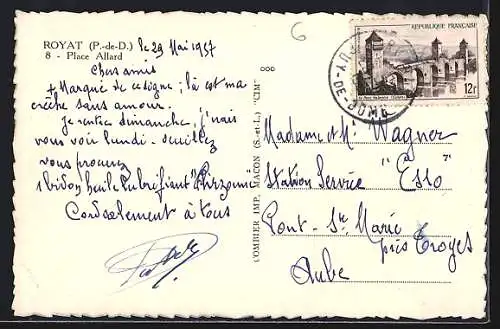 ROYAT (P.-de-D.)
8 - Place Allard
le 29 Mai 1957
Chers amis
+ Marqué de ce signe ; là est ma
crèche sans amour.
Je rentre dimanche, j'irais
vous voir lundi - veuillez
vous procurer
1 bidon huile lubrifiant
Cordialement à tous
COMBIER IMP. MACON (S.-et-L.) "CIM"
6
REPUBLIQUE FRANÇAISE
12F
UY-DE-DOME
Madame et M. Wagner
Station Service "Esso"
Pont-Ste Marie
près Troyes
Aube